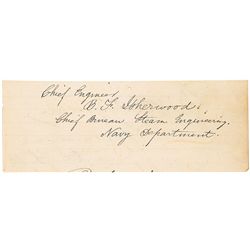 Chief Engineer
B. F. Isherwood.
Chief Bureau Steam Engineering,
Navy Department.